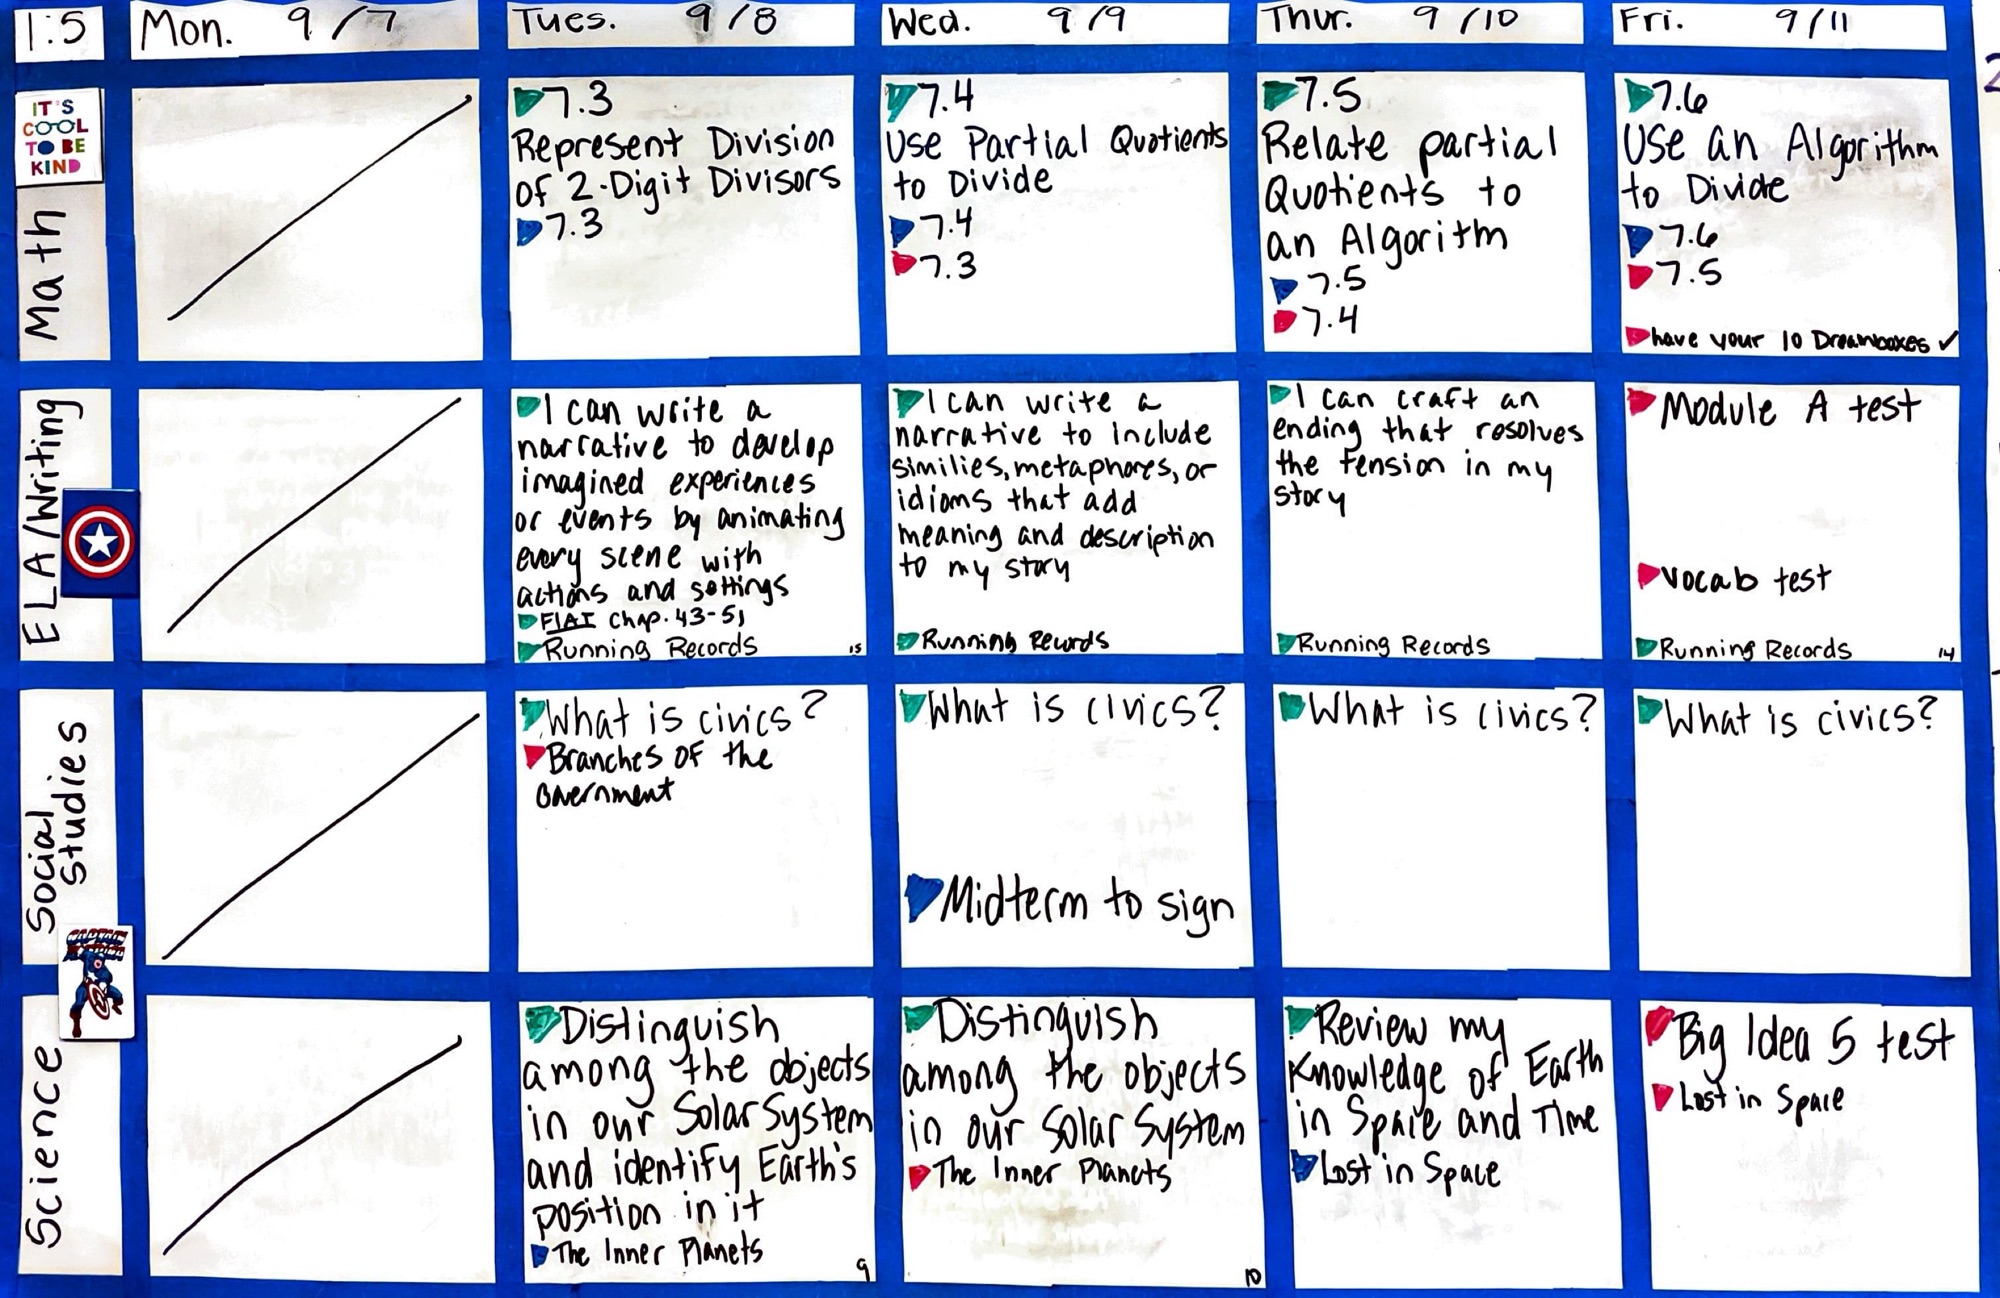 1:5
Mon. 9/7
Tues. 9/8
Wed. 9/9
Thur. 9/10
Fri. 9/11
IT'S
COOL
TO BE
KIND
Math
7.3
Represent Division
of 2-Digit Divisors
7.3
7.4
Use Partial Quotients
to Divide
7.4
7.3
7.5
Relate partial
Quotients to
an Algorithm
7.5
7.4
7.6
Use an Algorithm
to Divide
7.6
7.5
have your 10 Dreamboxes ✓
ELA/Writing
I can write a
narrative to develop
imagined experiences
or events by animating
every scene with
actions and settings
FIAI Chap. 43-51
Running Records
I can write a
narrative to include
similies, metaphores, or
idioms that add
meaning and description
to my story
Running Records
I can craft an
ending that resolves
the tension in my
story
Running Records
Module A test
Vocab test
Running Records 14
Social
Studies
What is civics?
Branches of the
Government
What is civics?
Midterm to sign
What is civics?
What is civics?
CAPTAIN
AMERICA
Science
Distinguish
among the objects
in our Solar System
and identify Earth's
position in it
The Inner Planets
9
Distinguish
among the objects
in our Solar System
The Inner Planets
10
Review my
Knowledge of Earth
in Space and Time
Lost in Space
Big Idea 5 test
Lost in Space